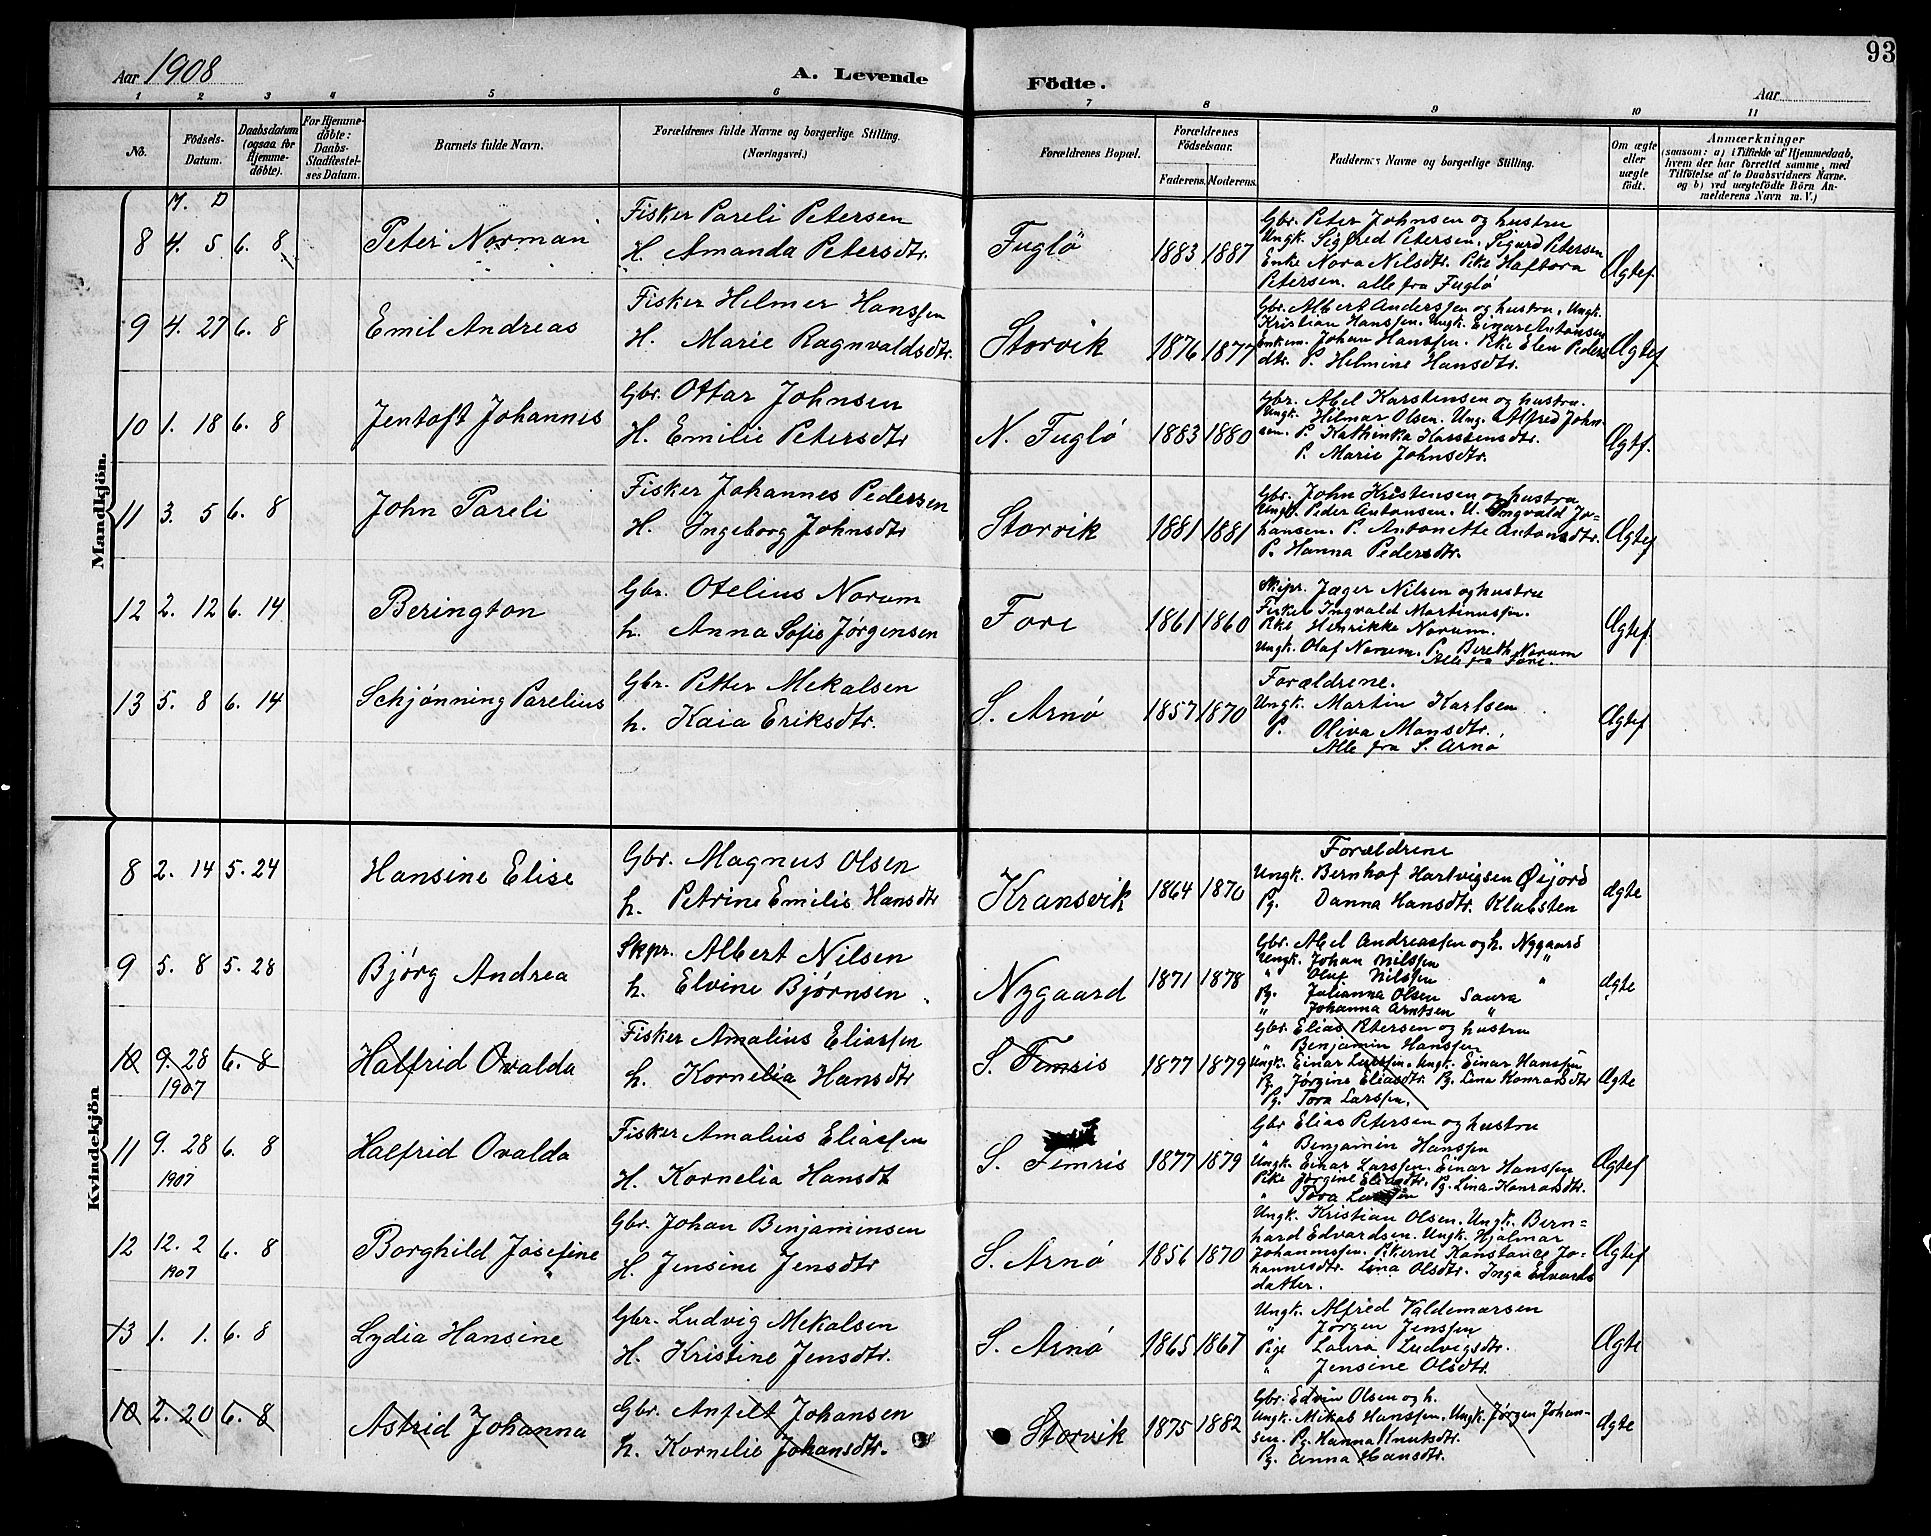 93
Aar 1908
A. Levende Födte.
Aar
1 2 3 4 5 6 7 8 9 10 11
No.
Födsels-Datum.
Daabsdatum (ogsaa for Hjemmedöbte).
For Hjemmedöbte: Daabs-Stadfæstelses Datum.
Barnets fulde Navn.
Forældrenes fulde Navne og borgerlige Stilling.
(Næringsvei.)
Forældrenes Bopæl.
Forældrenes Födselsaar.
Faderens. Moderens.
Faddernes Navne og borgerlige Stilling.
Om ægte eller uægte födt.
Anmærkninger
(saasom: a) i Tilfælde af Hjemmedaab, hvem der har forrettet samme, med Tilföielse af to Daabsvidners Navne. og b) ved uægtefödte Börn Anmelderens Navn m. V.)
Mandkjön.
M. D
8 4. 5 6. 8 Peter Norman
Fisker Pareli Petersen
H. Amanda Petersdtr.
Fuglö 1883 1887
Gbr. Peter Johnsen og hustru
Ungk. Sigfred Petersen. Sigurd Petersen
Enke Nora Nilsdtr. Pike Hafbora
Petersen. alle fra Fuglö
Ægtef.
9 4. 27 6. 8 Emil Andreas
Fisker Helmer Hanssen
H. Marie Ragnvaldsdtr.
Storvik 1876 1877
Gbr. Albert Anderssen og hustru. Ungk.
Kristian Hanssen. Ungk. Einar Antonsen
Enkem. Johan Hanssen. Pike Elen Peders
dtr. P. Helmine Hansdtr.
Ægtef
10 1. 18 6. 8 Jentoft Johannes
Gbr. Ottar Johnsen
H. Emilie Petersdtr
N. Fuglö 1883 1880
Gbr. Abel Karstensen og hustru.
Ungk. Hilmar Olsen. Ung. Alfred John-
sen. P. Kathinka Karstensdtr.
P. Marie Johnsdtr.
Ægtf.
11 3. 5 6. 8 John Pareli
Fisker Johannes Pedersen
H. Ingeborg Johnsdtr
Storvik 1881 1881
Gbr. John Kristensen og hustru
Ungk. Peder Antonsen. U. Ingvald Jo-
hansen. P. Antonette Antonsdtr.
P. Hanna Pedersdtr.
Ægtef
12 2. 12 6. 14 Berington
Gbr. Otelius Norum
h. Anna Sofie Jørgensen
Fore 1861 1860
Skipr. Jæger Nilsen og hustru
Fisker Ingvald Martinussen.
Pike Henrikke Norum.
Ungk. Olaf Norum. P. Bereth Norum
Alle fra Fore.
Ægtef.
13 5. 8 6. 14 Schjønning Parelius
Gbr. Petter Mekalsen
h. Kaia Eriksdtr.
S. Arnö 1857 1870
Forældrene.
Ungk. Martin Karlsen
P. Oliva Monsdtr.
Alle fra S. Arnö
Ægtef
Kvindekjön
8 2. 14 5. 24 Hansine Elise
Gbr. Magnus Olsen
h. Petrine Emilie Hansdtr
Kransvik 1864 1870
Forældrene
Ungk. Bernhof Hartvigsen Øijord
Pg. Danna Hansdtr. Klabsten
ægte
9 5. 8 5. 28 Bjørg Andrea
Skpr. Albert Nilsen
h. Elvine Bjørnsen
Nygaard 1871 1878
Gbr. Abel Andreassen og h. Nygaard
Ungk. Johan Nilssen "
" Oluf Nilssen "
Pg. Julianna Olsen Saura
" Johanna Arntsen "
ægte
10 9. 28 6. 8 Halfrid Ovalda
1907
Fisker Amalius Eliassen
h. Kornelia Hansdtr
S. Femris 1877 1879
Gbr. Elias Petersen og hustru
" Benjamin Hanssen
Ungk. Einar Larssen. Ungk. Einar Hanssen
Pg. Jørgine Eliasdtr. Pg. Lina Konradsdtr
Pg. Tora Larssen.
Ægte
11 9. 28 6. 8 Halfrid Ovalda
1907
Fisker Amalius Eliassen
H. Kornelia Hansdt
S. Femris 1877 1879
Gbr Elias Petersen og hustru
" Benjamin Hanssen
Ungk. Einar Larssen. Einar Hanssen
Pike Jørgine Eliasdtr. Pg. Lina Konradsdtr.
" Tora Larssen
Ægtef
12 12. 2 6. 8 Borghild Josefine
1907
Gbr. Johan Benjaminsen
H. Jensine Jensdtr
S. Arnö 1856 1870
Ungk. Kristian Olsen. Ungk. Bern=
hard Edvardsen. Ungk. Hjalmar
Johannessen. Pikerne Konstance Jo-
hannesdtr. Lina Olsdtr. Inga Edvards
datter.
Ægtef
13 1. 1. 6. 8 Lydia Hansine
Gbr. Ludvig Mekalsen
H. Kristine Jensdtr.
S. Arnö 1865 1867
Ungk. Alfred Valdemarsen
" Jørgen Jenssen
Pige Laura Ludvigsdtr.
" Jensine Olsdtr.
Ægte
10 2. 20 6. 8 Astrid Johanna
Gbr. Anfelt Johansen
h. Kornelie Johansdtr.
Storvik 1875 1882
Gbr. Edvin Olsen og h.
Ungk. Mikal Hanssen. Ungk. Jørgen Johan-
sen. Pg. Hanna Knutsdtr.
Pg. Anna Hansdtr.
ægte